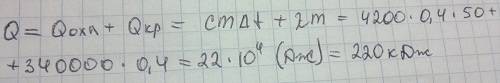 Q = Qохл + Qкр = cmΔt + λm = 4200·0,4·50+
+340000·0,4 = 22·10⁴ (Дж) = 220кДж